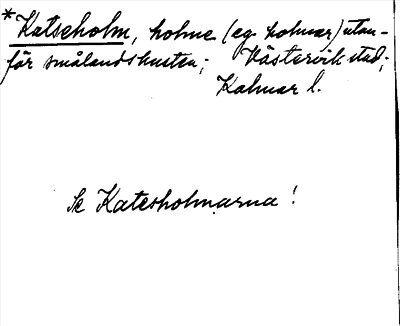 *Katseholm, holme (eg. holmar) utan-
för smålandskusten; Västervik stad;
Kalmar l.
Se Katesholmarna!